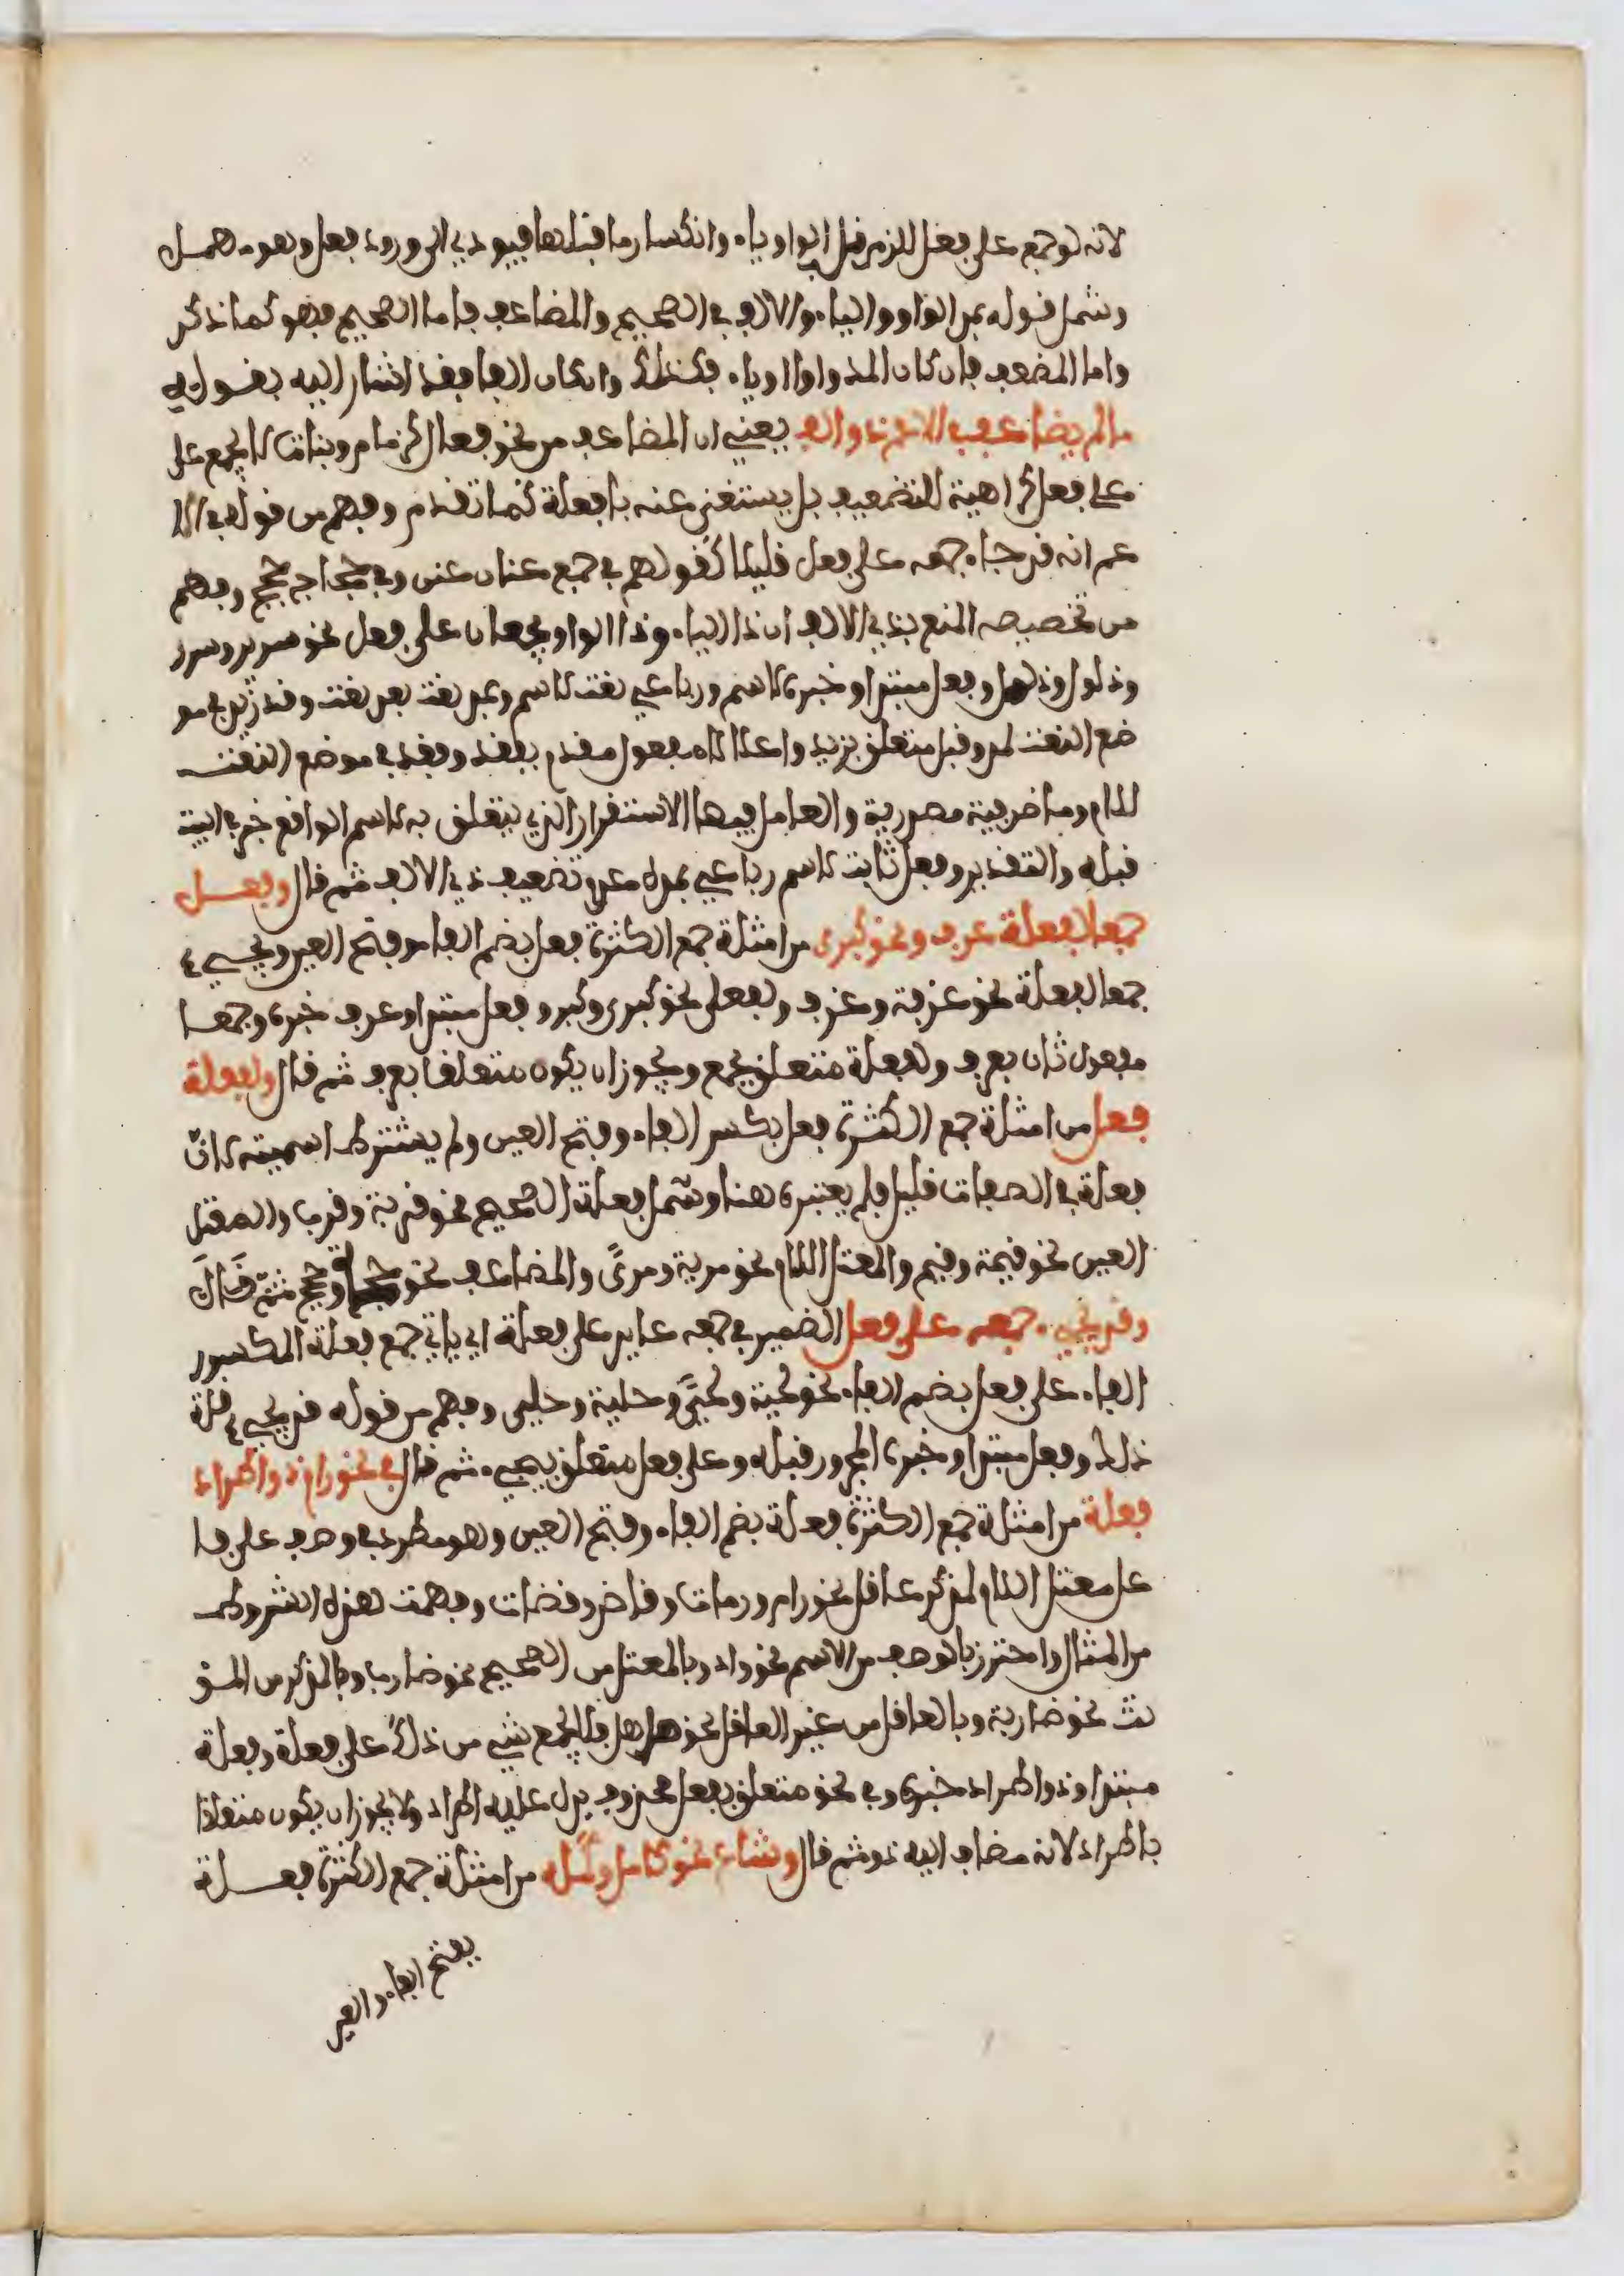 لانه لوجمع على فعل للزم قبل الواو ياء وانكسار ما قبلها فيودي الى ورود فعل وهو مهمل
وشمل قوله بمد الواو والياء والالف في الصحيح والمضاعف فاما الصحيح فهو كما ذكر
واما المضعف فان كان المد واوا او ياء فكذلك وان كان الفا فقد اشار اليه بقوله
مالم يضاعف في الاعم ذو الالف يعني ان المضاعف من نحو فعال كزمام وبتات لا يجمع على
على فعل كراهية للتضعيف بل يستغنى عنه بافعلة كما تقدم وفهم من قوله في الا
عم انه قد جاء جمعه على فعل قليلا كقولهم في جمع عنان عنن وفي حجاج حجج وفهم
من تخصيصه المنع بذي الالف ان ذا الياء وذا الواو يجمعان على فعل نحو سرير وسرر
وذلول وذلل وفعل مبتدا وخبره لاسم ورباعي نعت لاسم وبمد نعت بعد نعت وقد زيد في مو
ضع النعت لمد وقبل متعلق بزيد واعلالا مفعول مقدم بفقد وفقد في موضع النعت
للام وما ضرفية مصدرية والعامل فيها الاستقرار الذي يتعلق به لاسم الواقع خبر في البيت
قبله والتقدير وفعل ثابت لاسم رباعي بمده مدة تضعيف ذي الالف ثم قال وفعل
جمعا لفعلة عرف ونحو كبرى من امثلة جمع الكثرة فعل بضم الفاء وفتح العين ويجيء
جمعا لفعلة نحو غرفة وغرف ولفعلى نحو كبرى وكبر وفعل مبتدا وعرف خبره وجمعا
مفعول ثان بعرف ولفعلة متعلق بجمع ويجوز ان يكون متعلقا بعرف ثم قال ولفعلة
فعل من امثلة جمع الكثرة فعل بكسر الفاء وفتح العين ولم يشترط اسميته لان
فعلة في الصفات قليل فلم يعتبره هنا وشمل فعلة الصحيح نحو قربة وقرب والمعتل
العين نحو قيمة وقيم والمعتل اللام نحو مرية ومرى والمضاعف نحو حجة وحجج ثم قال
وقد يجيء جمعه على فعل الضمير في جمعه عايد على فعلة اي ياتي جمع فعلة المكسور
الفاء على فعل بضم الفاء نحو لحية ولحى وحلية وحلى وفهم من قوله قد يجيء قلة
ذلك وفعل مبتدا وخبره المجرور قبله وعلى فعل متعلق بيجيء ثم قال في نحو رام ذو اطراد
فعلة من امثلة جمع الكثرة فعلة بضم الفاء وفتح العين وهو مطرد في وصف على فا
عل معتل اللام لمذكر عاقل نحو رام ورمات وقاض وقضات وفهمت هذه الشروط
من المثال واحترز بالوصف من الاسم نحو واد وبالمعتل من الصحيح نحو ضارب وبالمذكر من المو
نث نحو ضاربة وبالعاقل من غير العاقل نحو صاهل فلا يجمع شيء من ذلك على فعلة وفعلة
مبتدا وذو اطراد خبره وفي نحو متعلق بفعل محذوف يدل عليه اطراد ولا يجوز ان يكون متعلقا
باطراد لانه مضاف اليه ذو ثم قال وشاع نحو كامل وكمله من امثلة جمع الكثرة فعلة
بفتح الفاء والعين